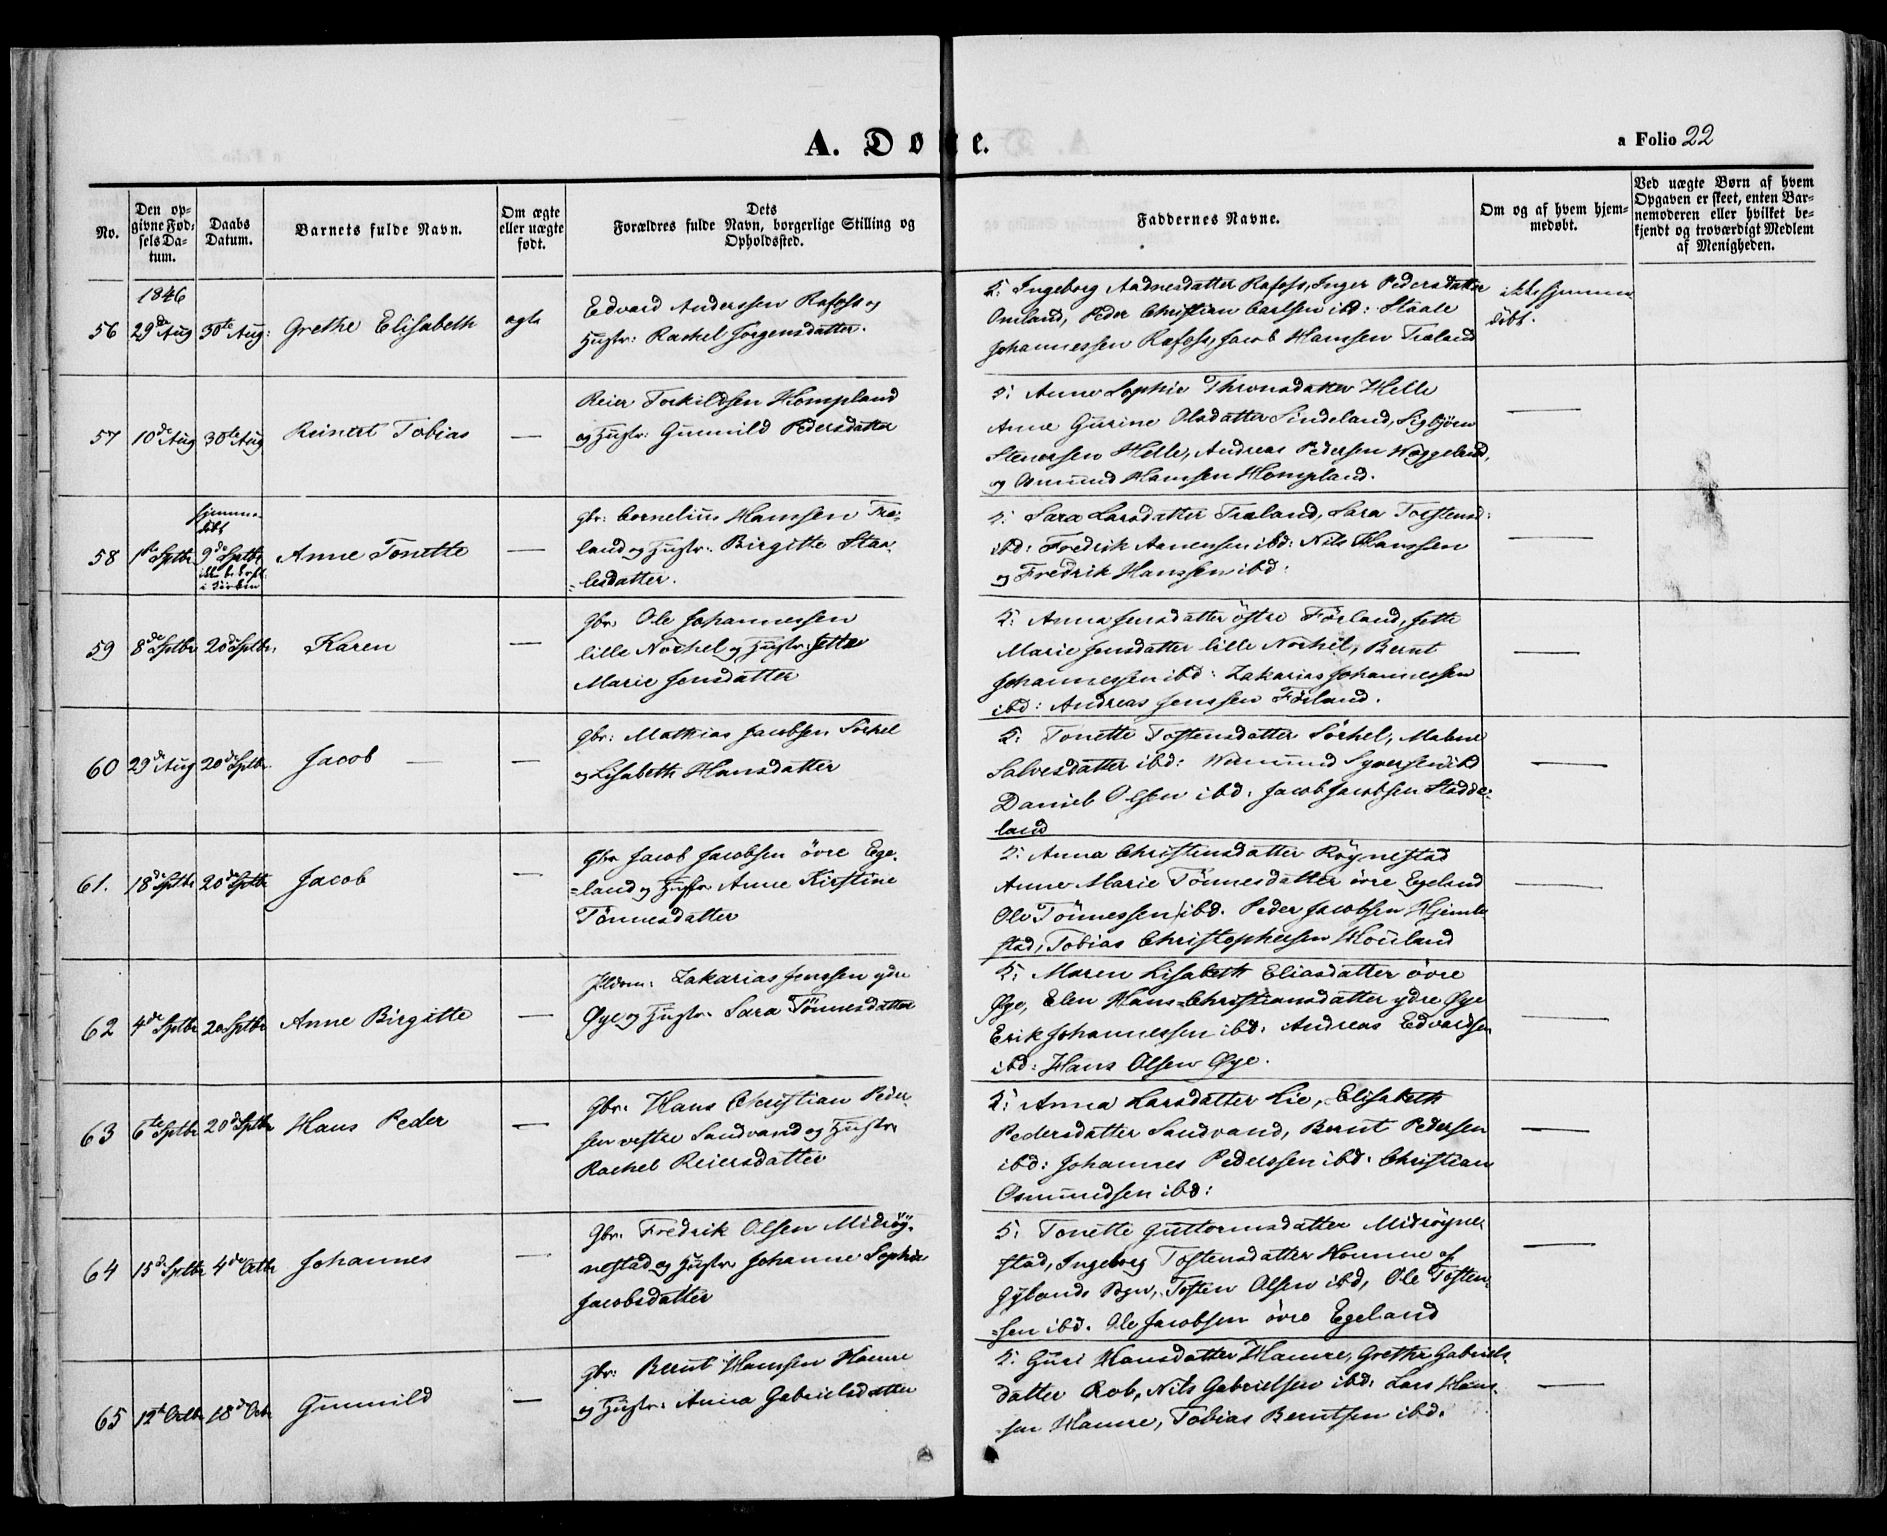 A. Døbte.
a Folio 22
No.
Den opgivne Fødsels Datum.
Daabs Datum.
Barnets fulde Navn.
Om ægte eller uægte født.
Dets Forældres fulde Navn, borgerlige Stilling og Opholdssted.
Faddernes Navne.
Om og af hvem hjemmedøbt.
Ved uægte Børn af hvem Opgaven er skeet, enten Barnemoderen eller hvilket bekjendt og troværdigt Medlem af Menigheden.
1846
56 29de Aug 30te Aug: Grethe Elisabeth ægte
Edvard Anderssen Rafoss og
Hustr: Rachel Jørgensdatter.
5: Ingeborg Aadnesdatter Rafoss, Inger Pedersdatter
Omland, Peder Christian Carlsen ibd: Staale
Johannessen Rafoss, Jacob Hansen Træland
ikke hjemme
døbt.
57 10de Aug 30te Aug Reinert Tobias —
Reier Torkildsen Hompland
og Hustr: Gunnild Pedersdatter
5: Anne Sophie Thronsdatter Helle
Anne Gurine Olsdatter Sindeland, Sigbjørn
Stenersen Helle, Andreas Pedersen Væggeland,
og Osmund Hansen Hompland.
—
58 1ste Septbr hjemme-
døbt
9de Septbr
i Kirken
Anne Tonette —
gbr: Cornelius Hansen Træ-
land og Hustr: Birgitte Staa-
lesdatter.
5: Sara Larsdatter Træland, Sara Torstensd:
ibd: Fredrik Aanensen ibd: Nils Hanssen
og Fredrik Hanssen ibd.
—
59 8de Septbr 20de Septbr. Karen —
gbr. Ole Johannessen
lille Nochel og Hustr: Jette
Marie Jensdatter
5: Anna Jensdatter östre Förland, Jette
Marie Jensdatter lille Nochel, Bernt
Johannessen ibd: Zakarias Johannessen
ibd: Andreas Jenssen Förland.
—
60 29de Aug 20de Septbr Jacob —
gbr: Mathias Jacobsen Sörhel
og Lisabeth Hansdatter
5: Tonette Tostensdatter Sörhel, Malene
Salvesdatter ibd: Vemund Syversen ibd
Daniel Olsen ibd: Jacob Jacobsen Stadde-
land
—
61. 18de Septbr 20de Septbr Jacob —
Gbr Jacob Jacobsen övre Ege-
land og Hustr. Anne Kirstine
Tönnesdatter
5: Anna Christensdatter Röynestad
Anne Marie Tönnesdatter övre Egeland
Ole Tönnessen ibd. Peder Jacobsen
stad, Tobias Christophersen Houland
—
62 4de Septbr 20 Septbr Anne Birgitte —
Zakarias Jenssen ydre
Øye og Hustr. Sara Tönnesdatter
5: Maren Lisabeth Eliasdatter övre
Øye, Elen Hans-Christiansdatter ydre Øye
Erik Johannessen ibd: Andreas Edvardsen
ibd: Hans Olsen Øye.
—
63 6te Septbr 20de Septbr Hans Peder —
gbr. Hans Christian Peder-
sen vestre Sandvand og Hustr.
Rachel Reiersdatter
5: Anna Larsdatter Lie, Elisabeth
Pedersdatter Sandvand, Bernt Pedersen
ibd: Johannes Pederssen ibd. Christian
Osmundsen ibd:
—
64 15de Septbr 4de Octbr Johannes —
Gbr. Fredrik Olsen Midröy-
nestad og Hustr Johanne Sophie
Jacobsdatter
5. Tonette Guttormsdatter Midröyne-
stad, Ingeborg Tostensdatter Homme af
Gylands Sogn, Tosten Olsen ibd, Ole Tosten-
sen ibd. Ole Jacobsen övre Egeland
—
65 12te Octbr 18de Octr Gunnild —
gbr: Bernt Hansen Hamre
og Hustr: Anna Gabrielsdatter
5: Guri Hansdatter Hamre, Grethe Gabriels-
datter Rob, Nils Gabrielsen ibd: Lars Han-
sen Hamre, Tobias Berntsen ibd.
—